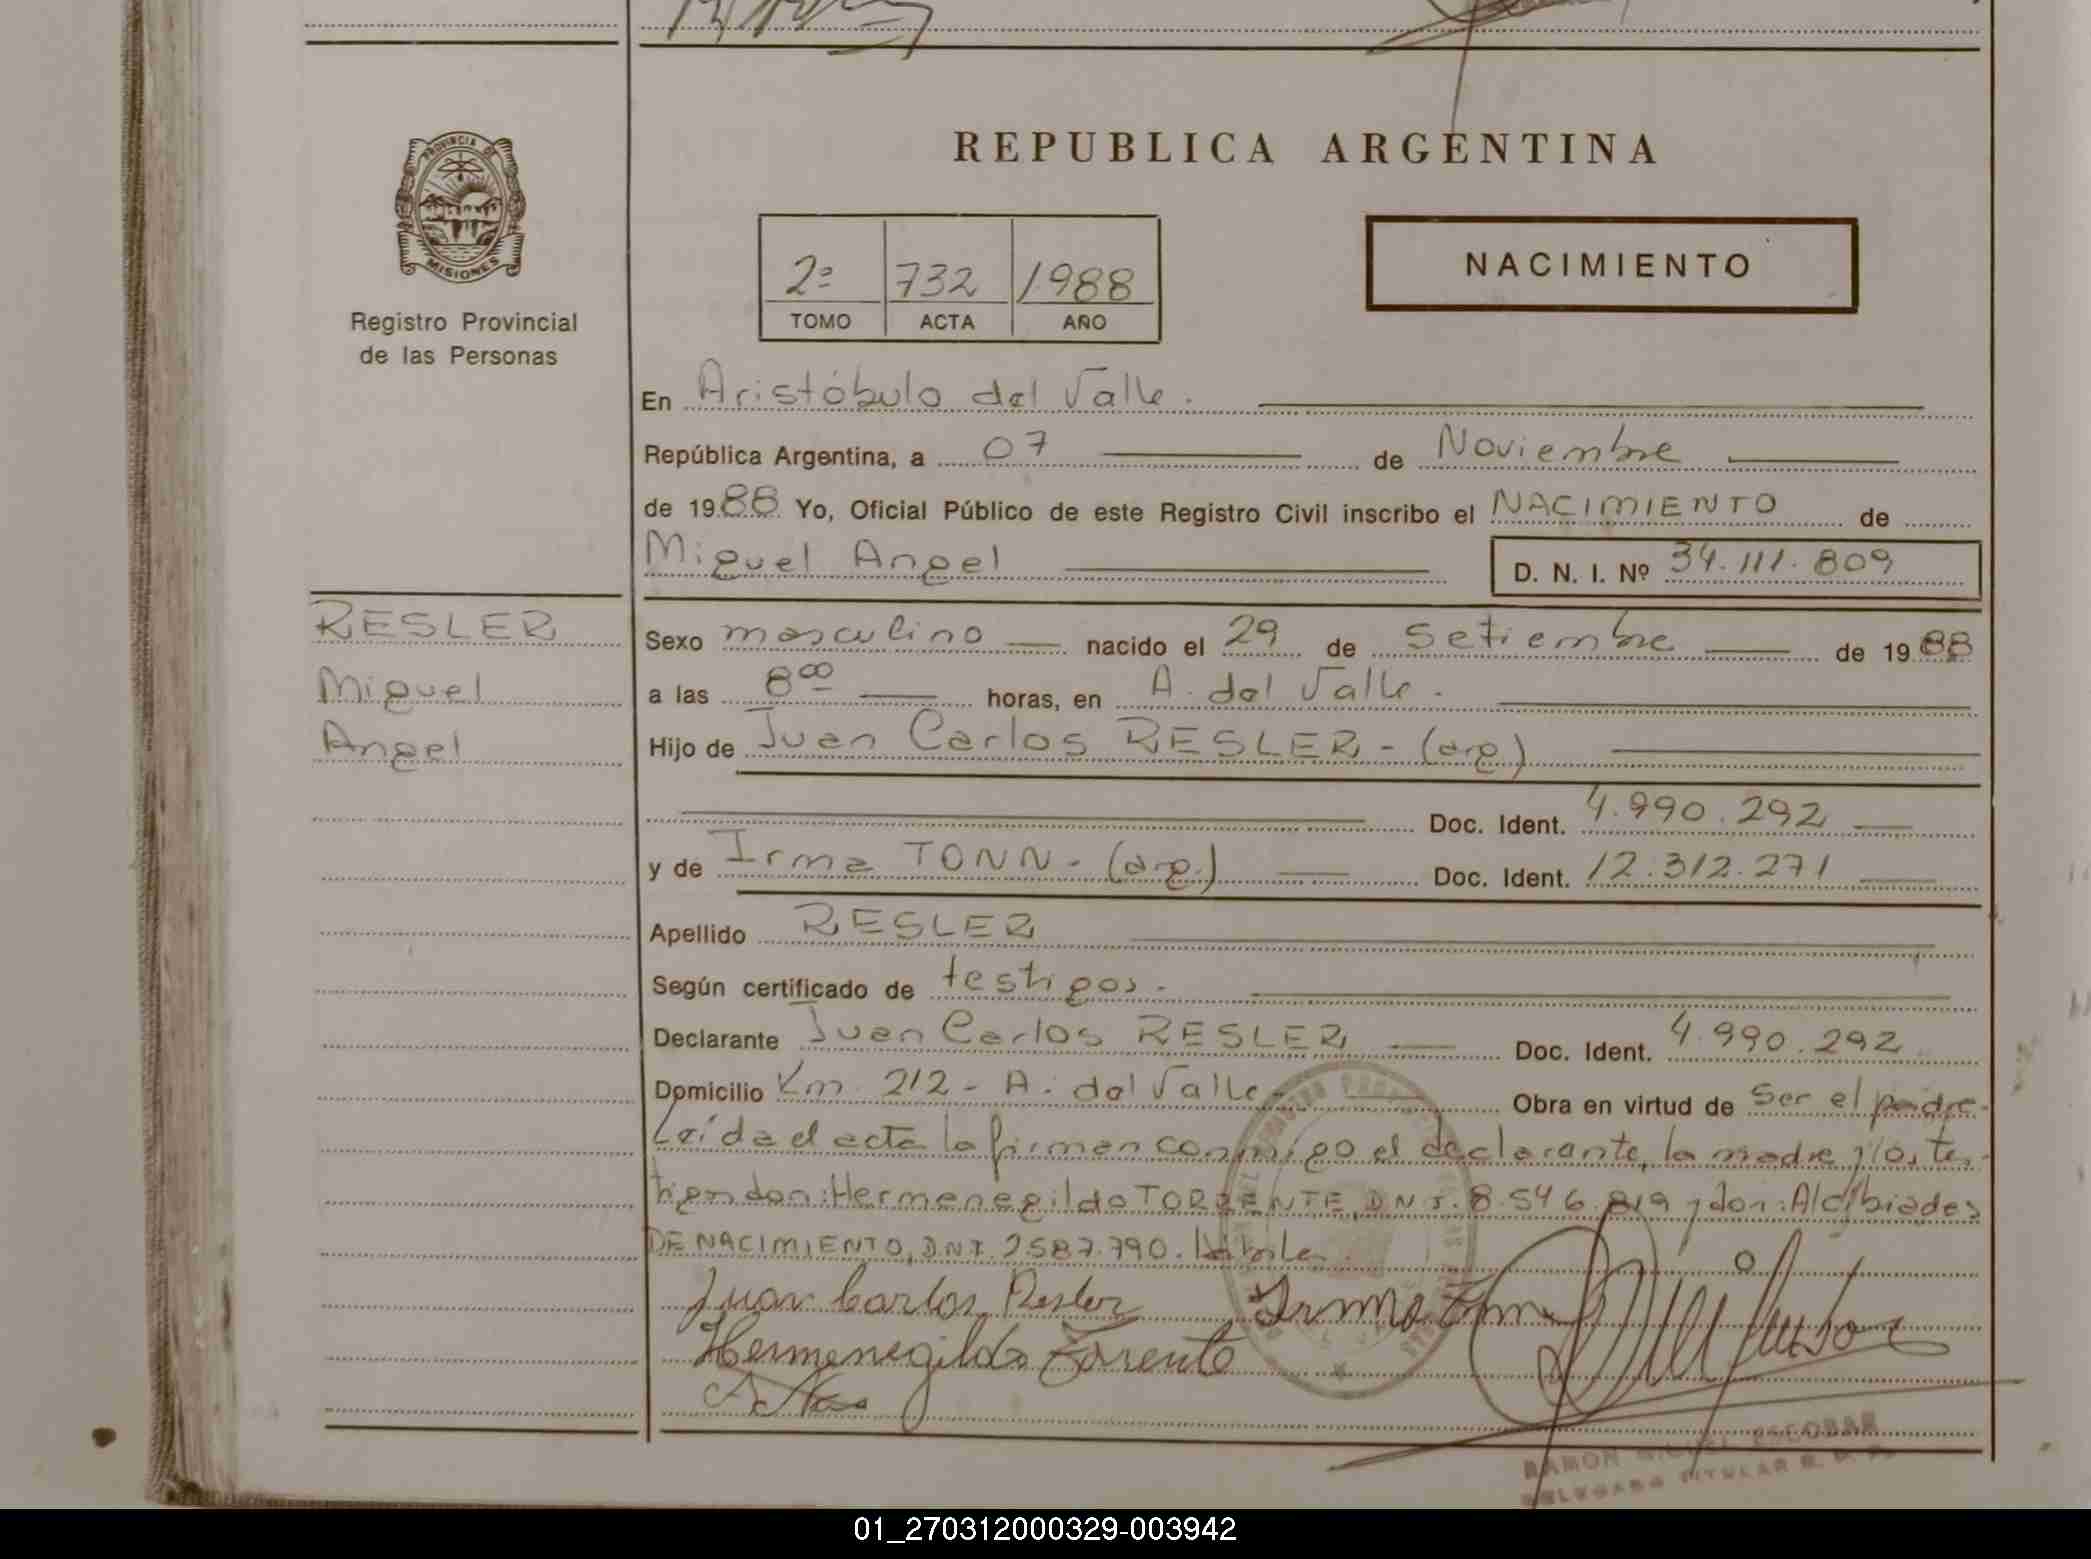 REPUBLICA ARGENTINA
PROVINCIA DE
MISIONES
Registro Provincial
de las Personas
2º 732 1988
TOMO ACTA AÑO
NACIMIENTO
En Aristóbulo del Valle.
República Argentina, a 07 de Noviembre
de 1988 Yo, Oficial Público de este Registro Civil inscribo el NACIMIENTO de
Miguel Angel D. N. I. Nº 34.111.809
RESLER
Miguel
Angel
Sexo masculino nacido el 29 de Setiembre de 1988
a las 800 horas, en A. del Valle.
Hijo de Juan Carlos RESLER - (arg)
Doc. Ident. 4.990.292
y de Irma TONN - (arg.) Doc. Ident. 12.312.271
Apellido RESLER
Según certificado de testigos.
Declarante Juan Carlos RESLER Doc. Ident. 4.990.292
Domicilio Km. 212 - A. del Valle Obra en virtud de ser el padre.
Leída el acta la firman conmigo el declarante, la madre y los tes-
tigos don: Hermenegildo TORRENTE, D.N.I. 8.546.819 y don: Alcibiades
DE NACIMIENTO, D.N.I. 7.587.790.
Juan Carlos Resler Irma
Hermenegildo Torrente
RAMON MIGUEL ESCOBAR
DELEGADO TITULAR
01_270312000329-003942